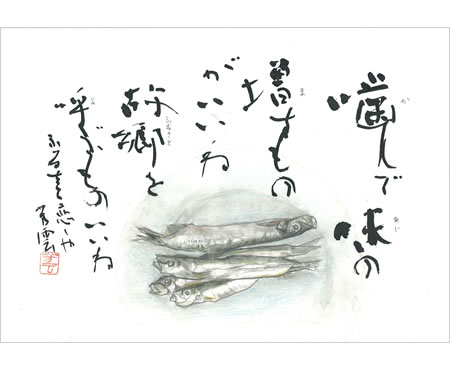 噛んで味の
増すもの
がいいね
故郷を
呼ぶものいいね
ふるさと恋しや